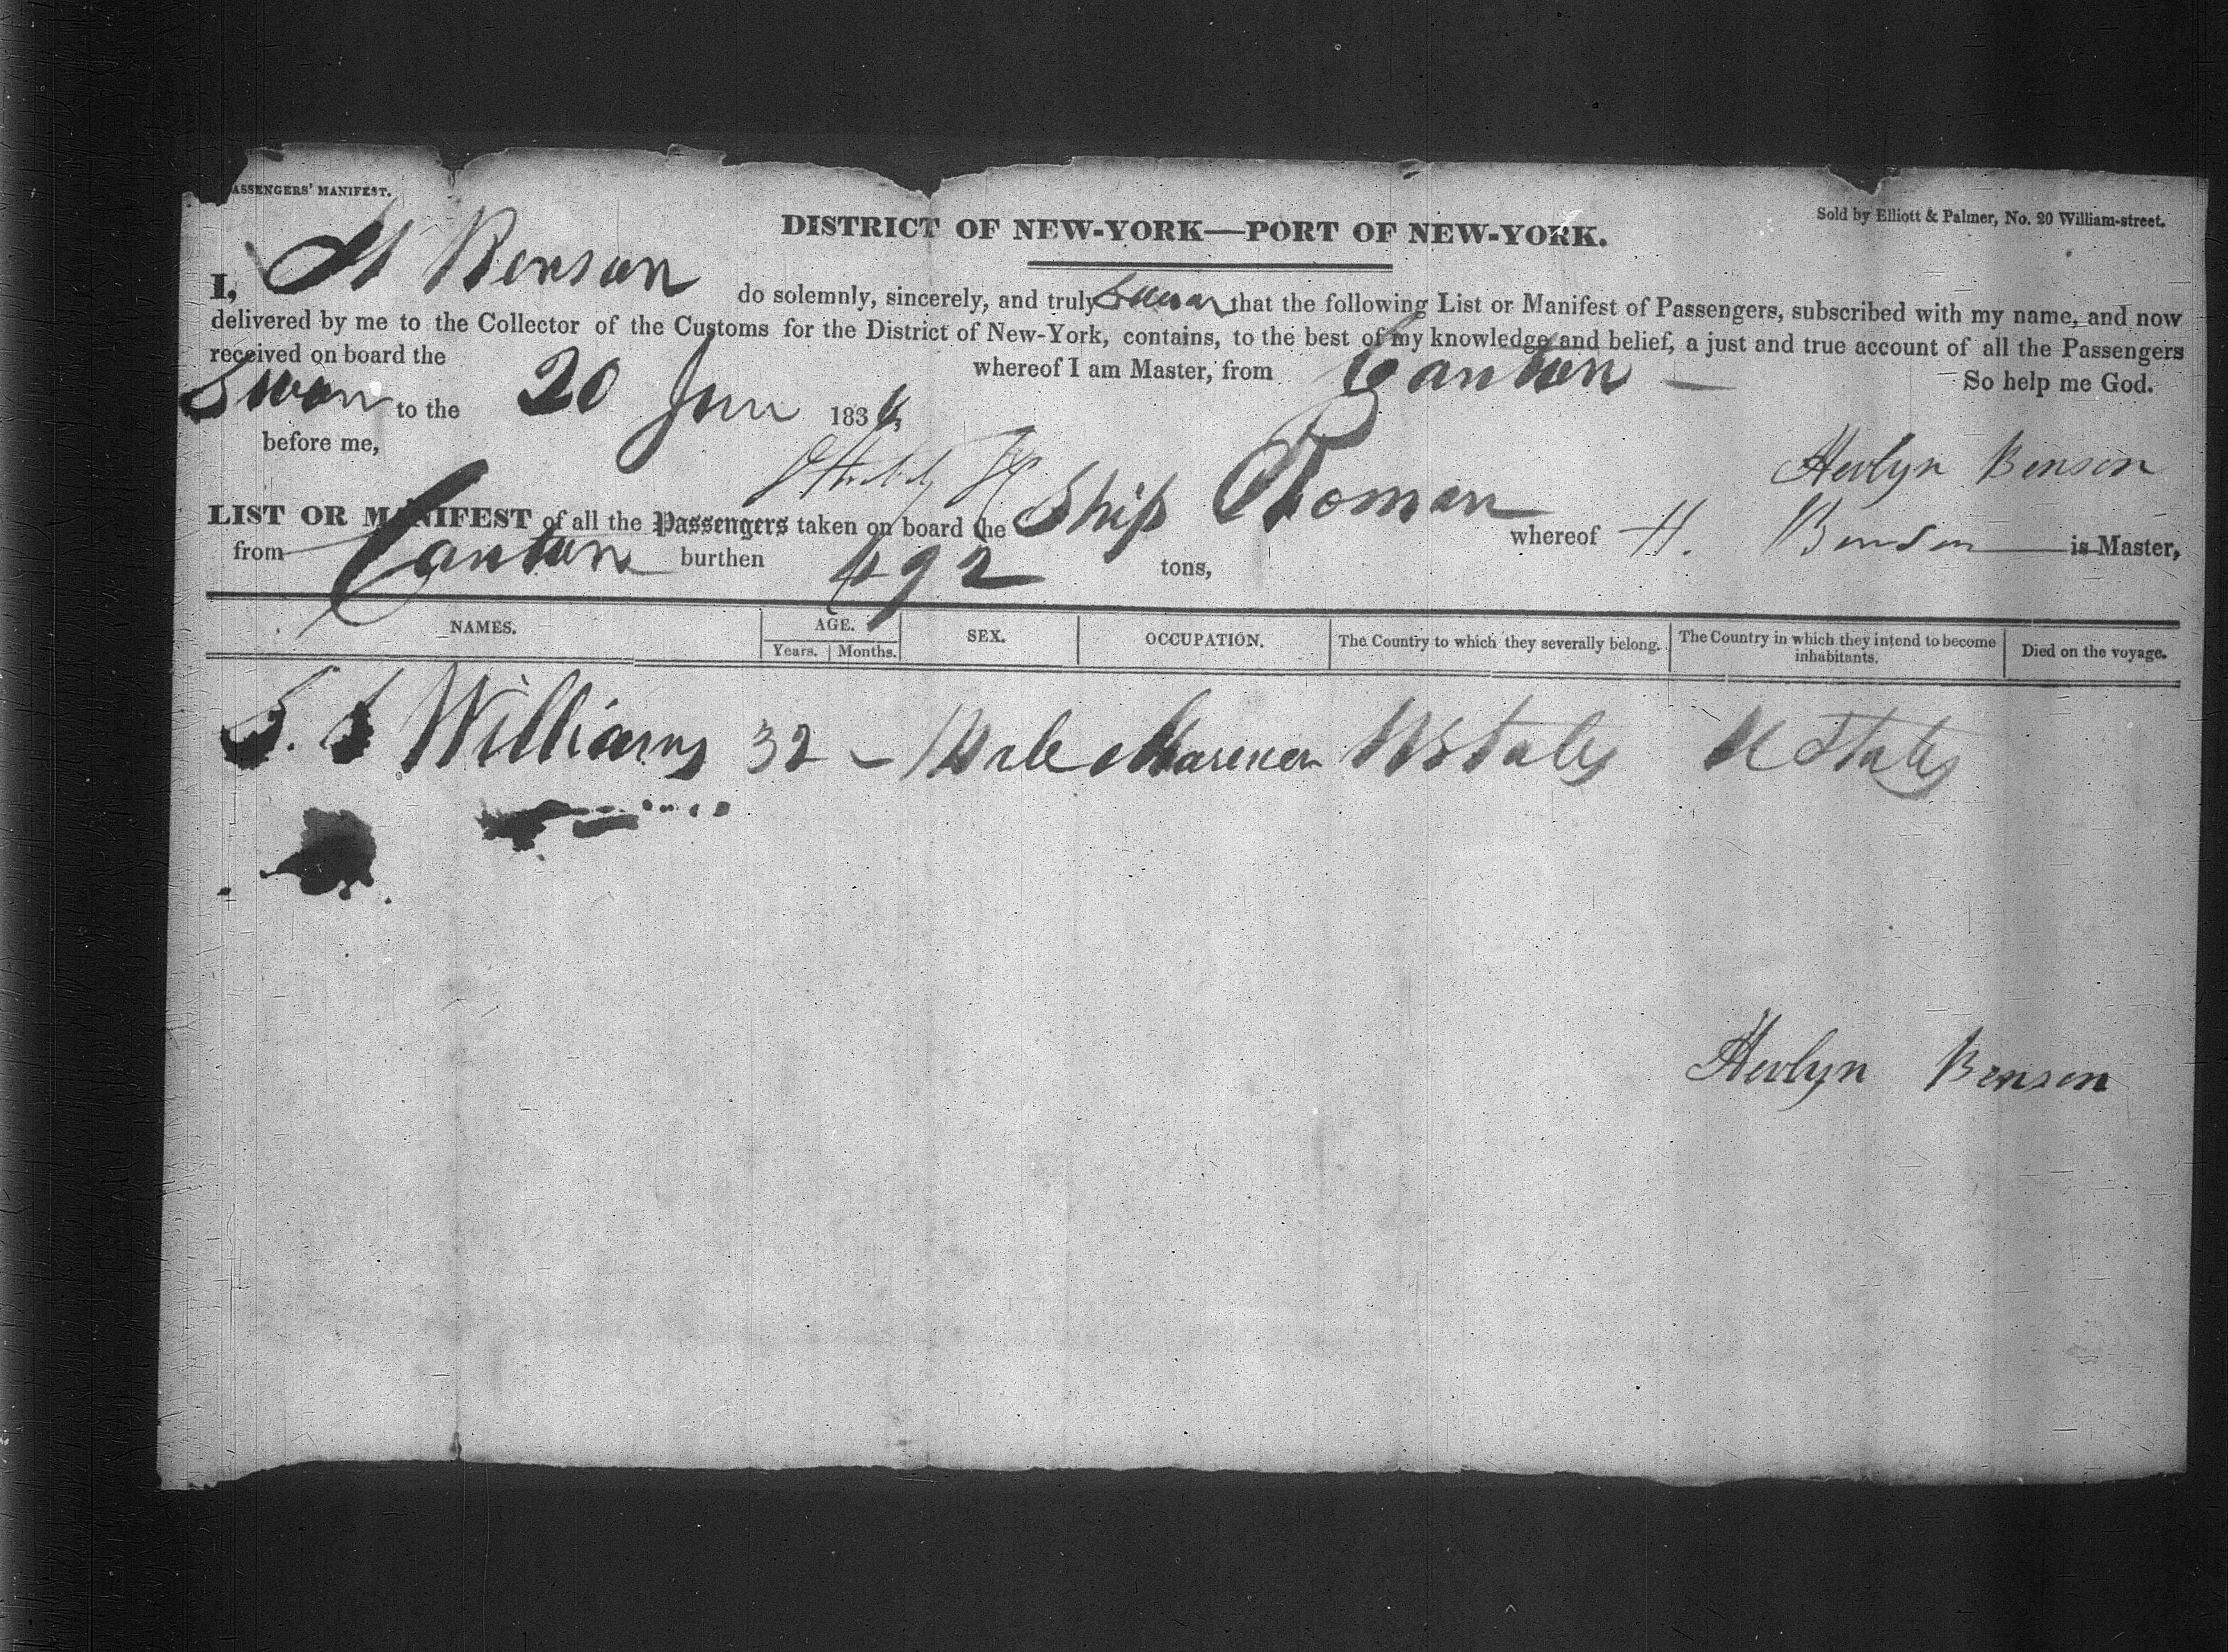 ASSENGERS' MANIFEST.
Sold by Elliott & Palmer, No. 20 William-street.
DISTRICT OF NEW-YORK—PORT OF NEW-YORK.
I, H Benson do solemnly, sincerely, and truly Swear that the following List or Manifest of Passengers, subscribed with my name, and now
delivered by me to the Collector of the Customs for the District of New-York, contains, to the best of my knowledge and belief, a just and true account of all the Passengers
received on board the whereof I am Master, from Canton — So help me God.
Sworn to the 20 Jun 1836
before me, Benson
LIST OR MANIFEST of all the Passengers taken on board the Ship Roman whereof H. Benson is Master,
from Canton burthen 492 tons,
NAMES. AGE. SEX. OCCUPATION. The Country to which they severally belong. The Country in which they intend to become inhabitants. Died on the voyage.
Years. Months.
S. S Williams 32 – Male Mariner UStates U States
Benson